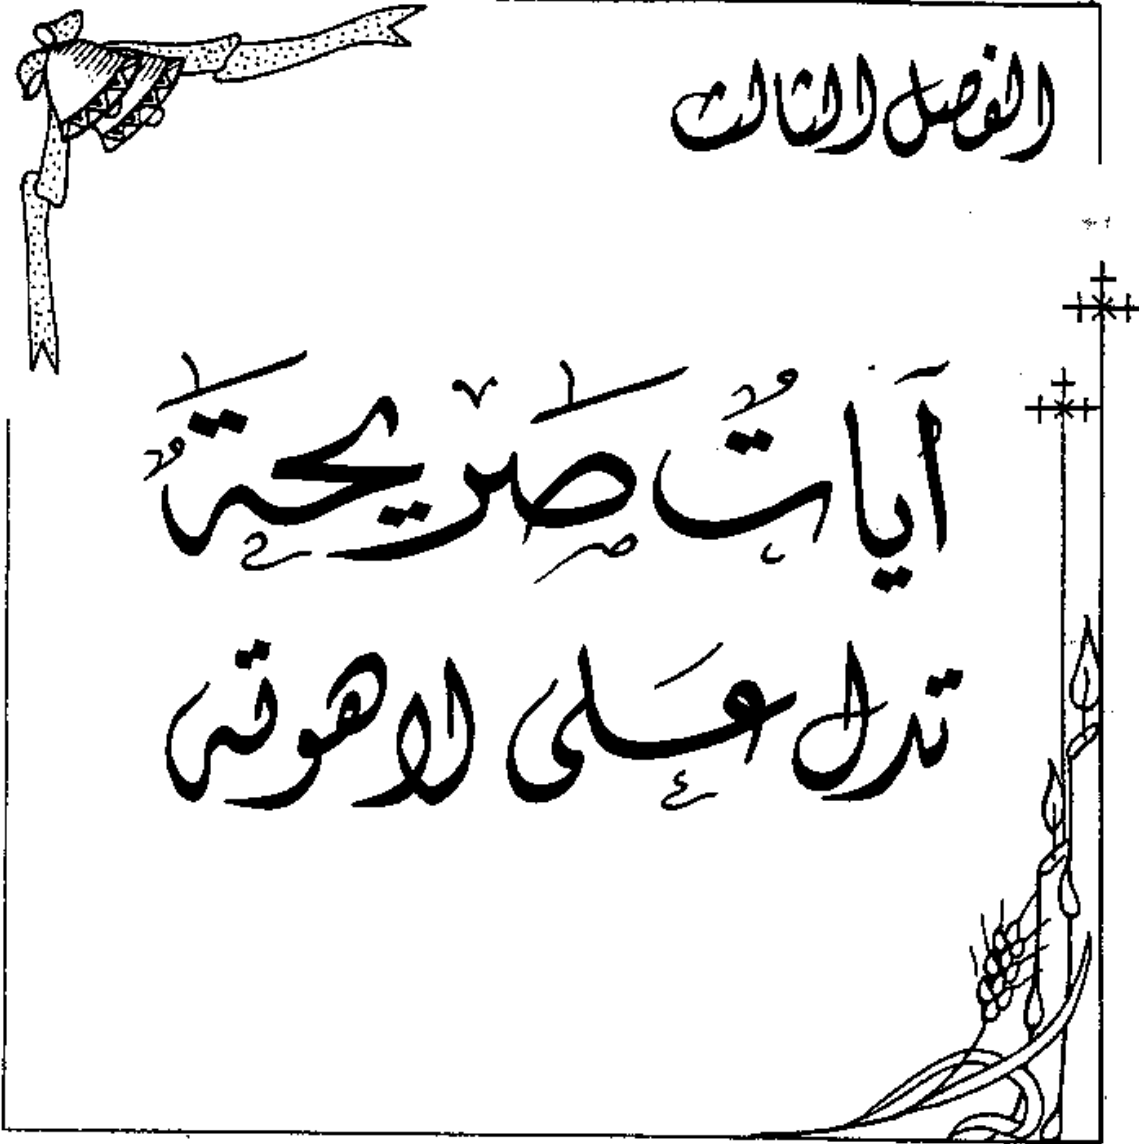 الفصل الثالث
آياتٌ صَريحَةٌ
تدل على لاهوته